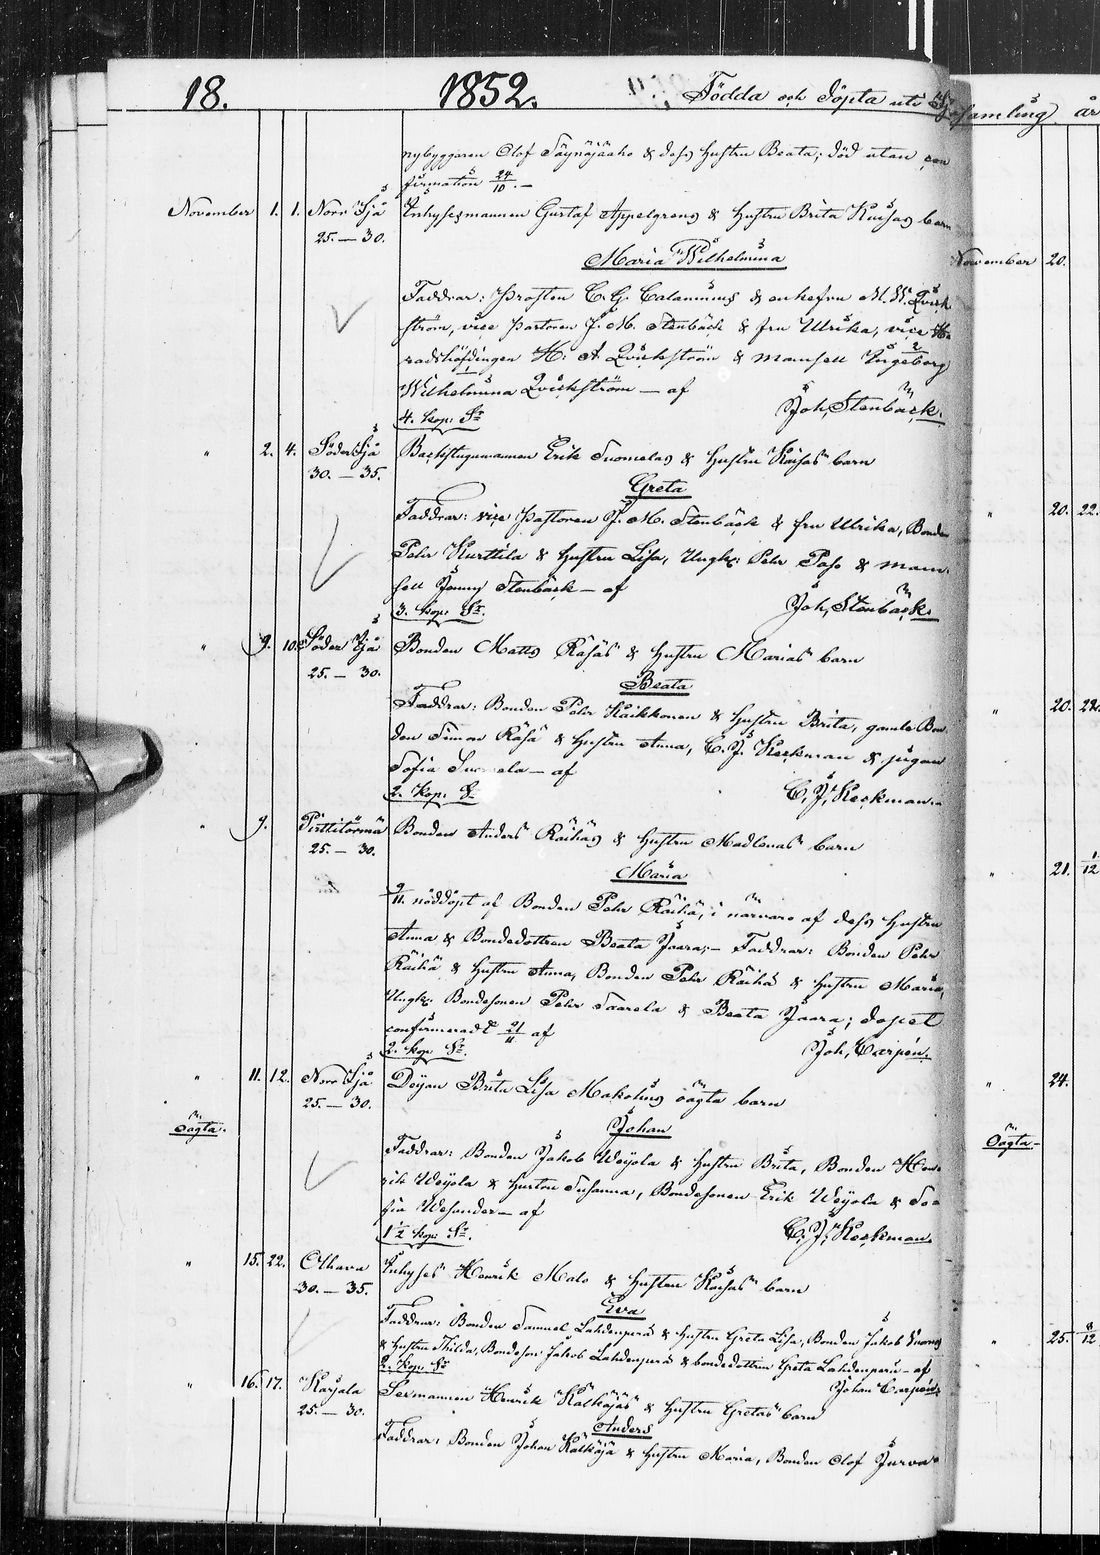 18. 1852. Födda och Döpta uti
samling år
nybyggaren Olof Täynäjäaho & dess hustru Beata; död utan con
firmation 24/10. —
November 1. 1. Norr Ijå Inhysesmannen Gustaf Appelgrens & hustru Brita Kaisas barn
25. — 30.
Maria Wilhelmina
Faddrar: Prosten C. G. Calamnius & enkefru M. W. Qvick
ström, vice Pastoren J. M. Stenbäck & fru Ulrika, vice Hä
radshöfdingen K. A. Qvickström & mamsell Ingeborg
Wilhelmina Qvickström — af
4. kop: Sr Joh, Stenbäck.
" 2. 4. Söder Ijå Backstugumannen Erik Tuomelas & hustru Kaisas barn
30. — 35.
Greta
Faddrar: vice Pastoren J. M. Stenbäck & fru Ulrika, Bonden
Pehr Kurttila & hustru Lisa, Ungk: Pehr Paso & mam
sell Jenny Stenbäck — af
3. kop: Sr. Joh, Stenbäck.
" 9. 10. Söder Ijå Bonden Matts Räsäs & hustru Marias barn
25. — 30.
Beata
Faddrar: Bonden Pehr Kaikkonen & hustru Brita, gamle Bon
den Simon Räsä & hustru Anna, C. J. Keckman & pigan
Sofia — af
2. kop. S. C, J, Keckman.
" 9. Pirttitörmä Bonden Anders Räihäs & hustru Madlenas barn
25. — 30.
Maria
9/11. nöddöpt af Bonden Pehr Räihä, i närvaro af dess hustru
Anna & Bondedottren Beata Jaara; — Faddrar: Bonden Pehr
Räihä & hustru Anna, Bonden Pehr Räihä & hustru Maria,
Ungk: Bondesonen Pehr Saarela & Beata Jaara; dopet
confirmeradt 21/11 af
2. kop: Sr. Joh, Carpén.
" 11. 12. Norr Ijå Dejan Brita Lisa Makolins oägta barn
25. — 30.
oägta. Johan
Faddrar: Bonden Jakob Weijola & hustru Brita, Bonden Hen
rik Weijola & hustru Susanna, Bondesonen Erik Weijola & So
fia Wesander — af
1 1/2 kop: Sr. C, J, Keckman.
" 15. 22. Olhava Inhyses Henrik Malo & hustru Kaisas barn
30. — 35.
Eva
Faddrar: Bonden Samuel Lahdenperä & hustru Greta Lisa, Bonden Jakob
& hustru Thilda, Bondeson Jakob Lahdenperä & bondedottren Greta Lahdenperä — af
2. kop: Sr Johan Carpén.
" 16. 17. Karjala Sexmannen Henrik Kälkäjäs & hustru Gretas barn
25. — 30.
Anders
Faddrar: Bonden Johan Kälkäjä & hustru Maria, Bonden Olof
November 20.
" 20. 22.
" 20.
" 21. 1/12
" 24.
Oägta —
" 25. 8/12